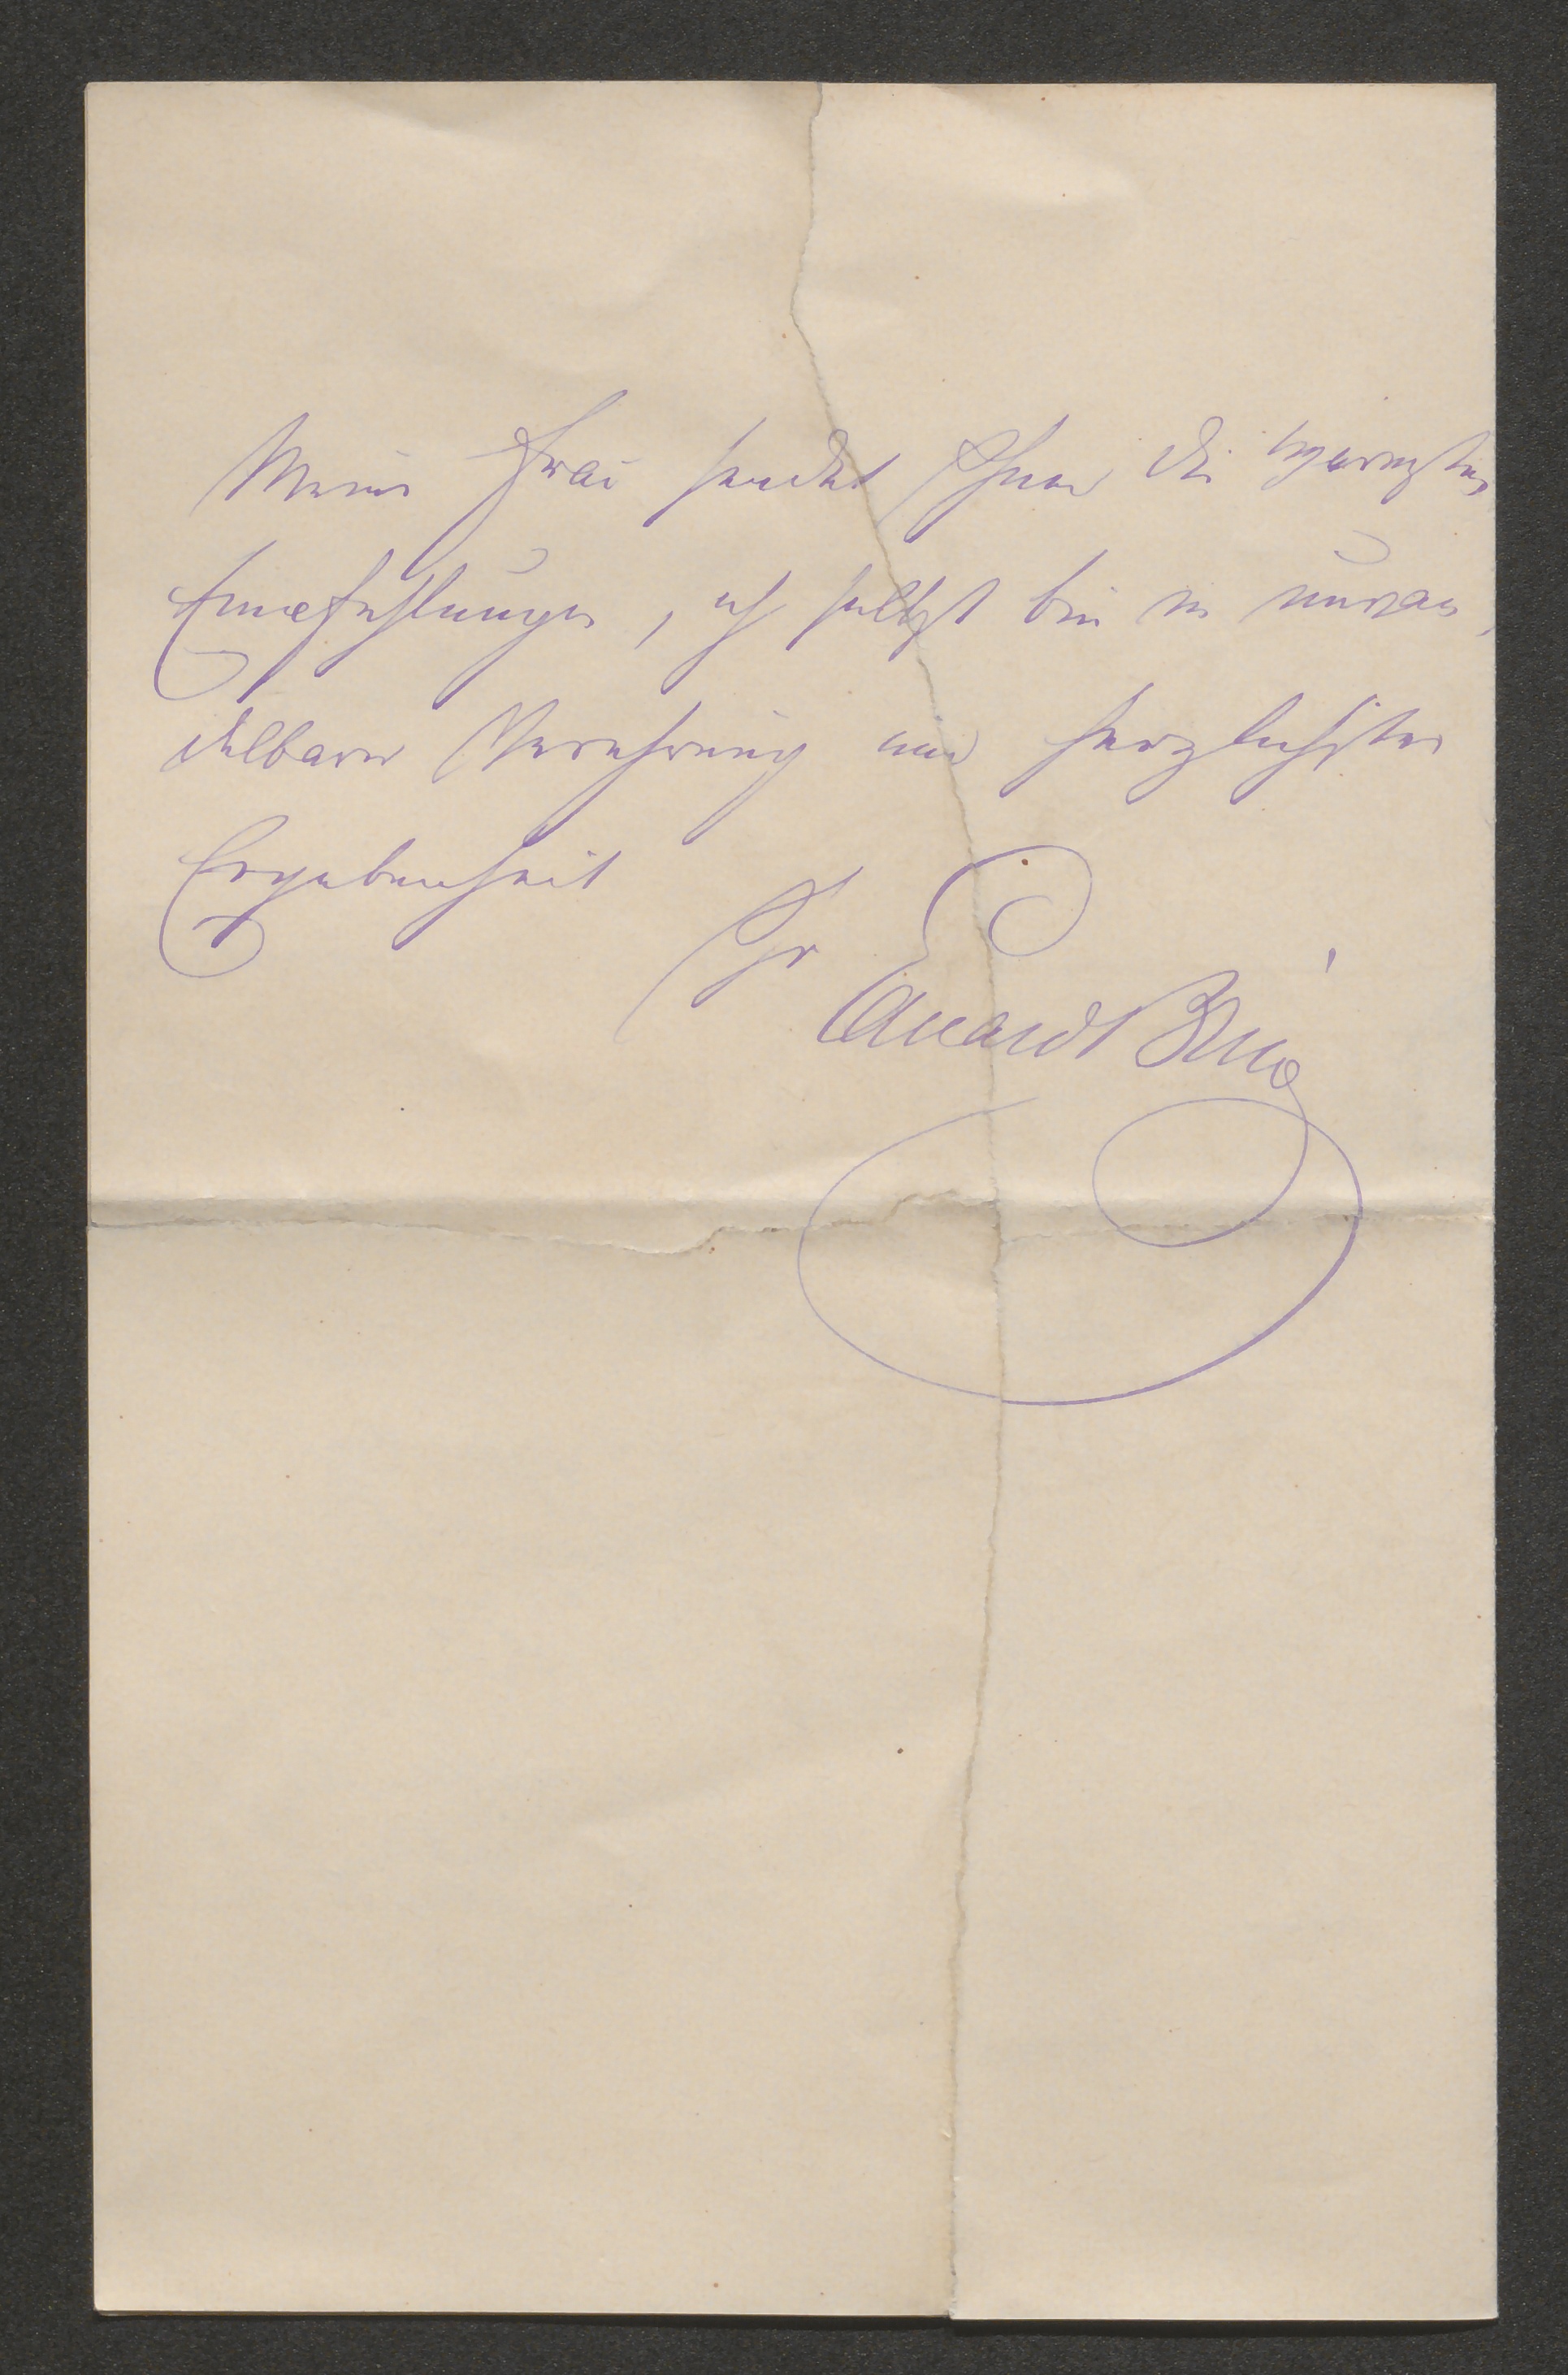 Meine Frau sendet Ihnen die wärmsten
Empfehlungen, ich selbst bin in unwan-
delbarer Verehrung und herzlichster
Ergebenheit
Ihr
Eduard